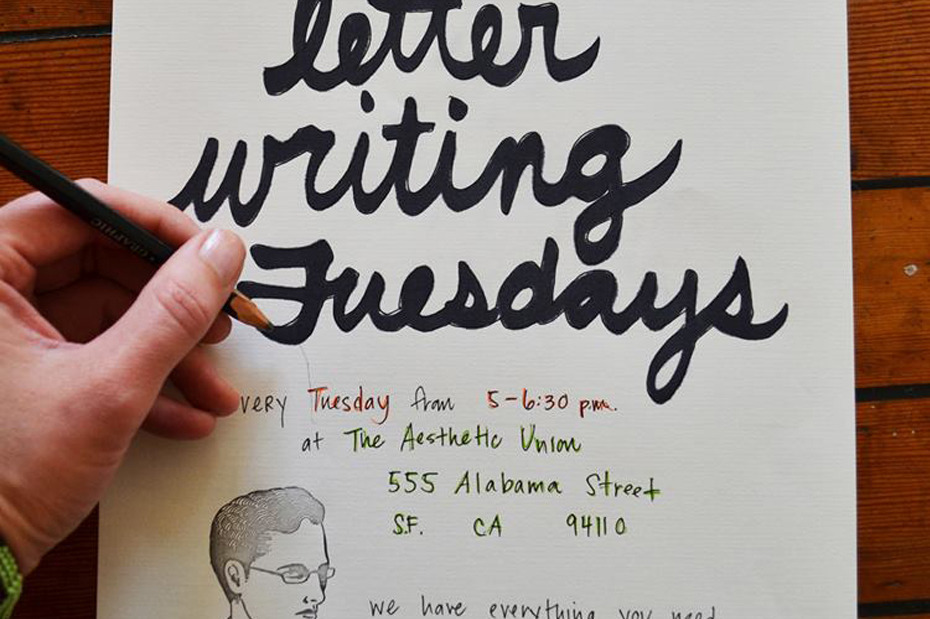 letter
writing
Tuesdays
very Tuesday from 5-6:30 p.m.
at The Aesthetic Union
555 Alabama Street
S.F. CA 94110
we have everything you need
GRAPHIC